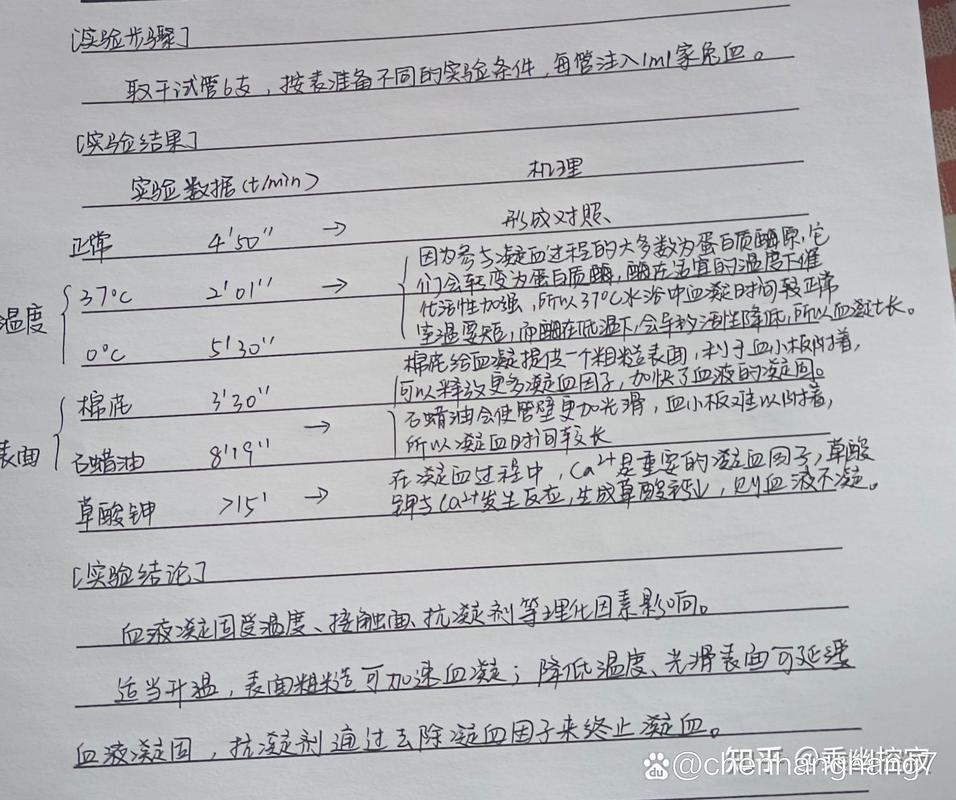 [实验步骤]
取干试管6支，按表准备不同的实验条件，每管注入1ml家兔血。
[实验结果]
实验数据(t/min) 机理
正常 4'50" → 形成对照、
温度
37℃ 2'01" →
0℃ 5'30"
因为参与凝血过程的大多数为蛋白质酶原，它
们会转变为蛋白质酶，酶在适宜的温度下催
化活性加强，所以37℃水浴中血凝时间较正常
室温要短，而酶在低温下，会导致活性降低，所以血凝时长。
表面
棉底 3'30"
石蜡油 8'19" →
棉底给血凝提供一个粗糙表面，利于血小板附着，
可以释放更多凝血因子，加快了血液的凝固。
石蜡油会使管壁更加光滑，血小板难以附着，
所以凝血时间较长
草酸钾 >15' →
在凝血过程中，Ca²⁺是重要的凝血因子，草酸
钾与Ca²⁺发生反应，生成草酸钙↓，则血液不凝。
[实验结论]
血液凝固受温度、接触面、抗凝剂等理化因素影响。
适当升温，表面粗糙可加速血凝；降低温度、光滑表面可延缓
血液凝固，抗凝剂通过去除凝血因子来终止凝血。
知乎 @乘幽控寂
Bai @chenhanghang7